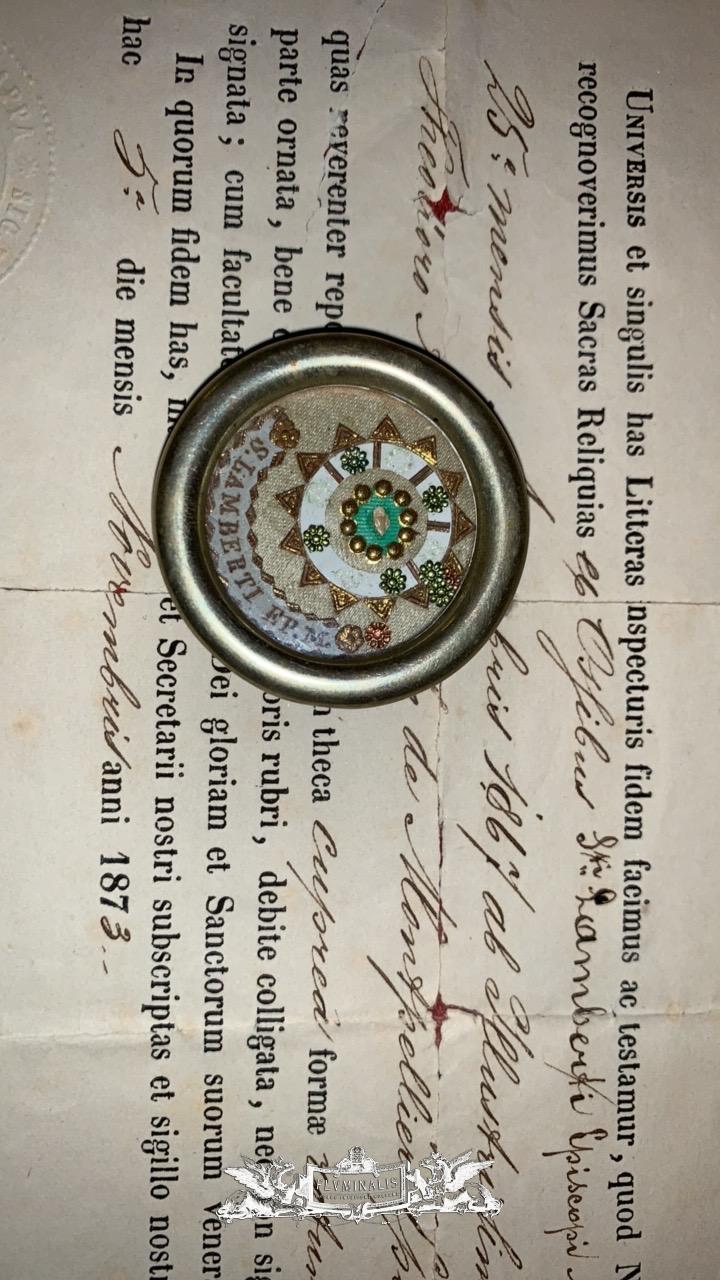 UNIVERSIS et singulis has Litteras inspecturis fidem facimus ac testamur, quod N
recognoverimus Sacras Reliquias ex Ossibus Sti. Lamberti Episcopi
25.a mensis bris 1867 ab Illustrissim
Theodoro de Montpellier
quas reverenter repo theca cupreâ formæ
parte ornata, bene c oris rubri, debite colligata, nec n sig
signata; cum facultat Dei gloriam et Sanctorum suorum vener
In quorum fidem has, m et Secretarii nostri subscriptas et sigillo nostr
hac 5.a die mensis Novembris anni 1873
S. LAMBERTI EP. M.
FLUMINALIS